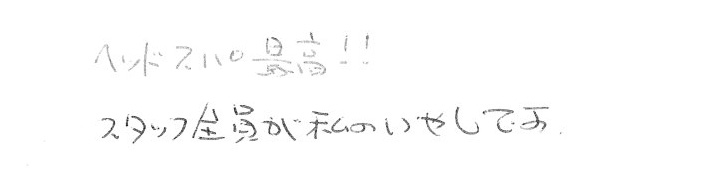 ヘッドスパ最高!!
スタッフ全員が私のいやしです.